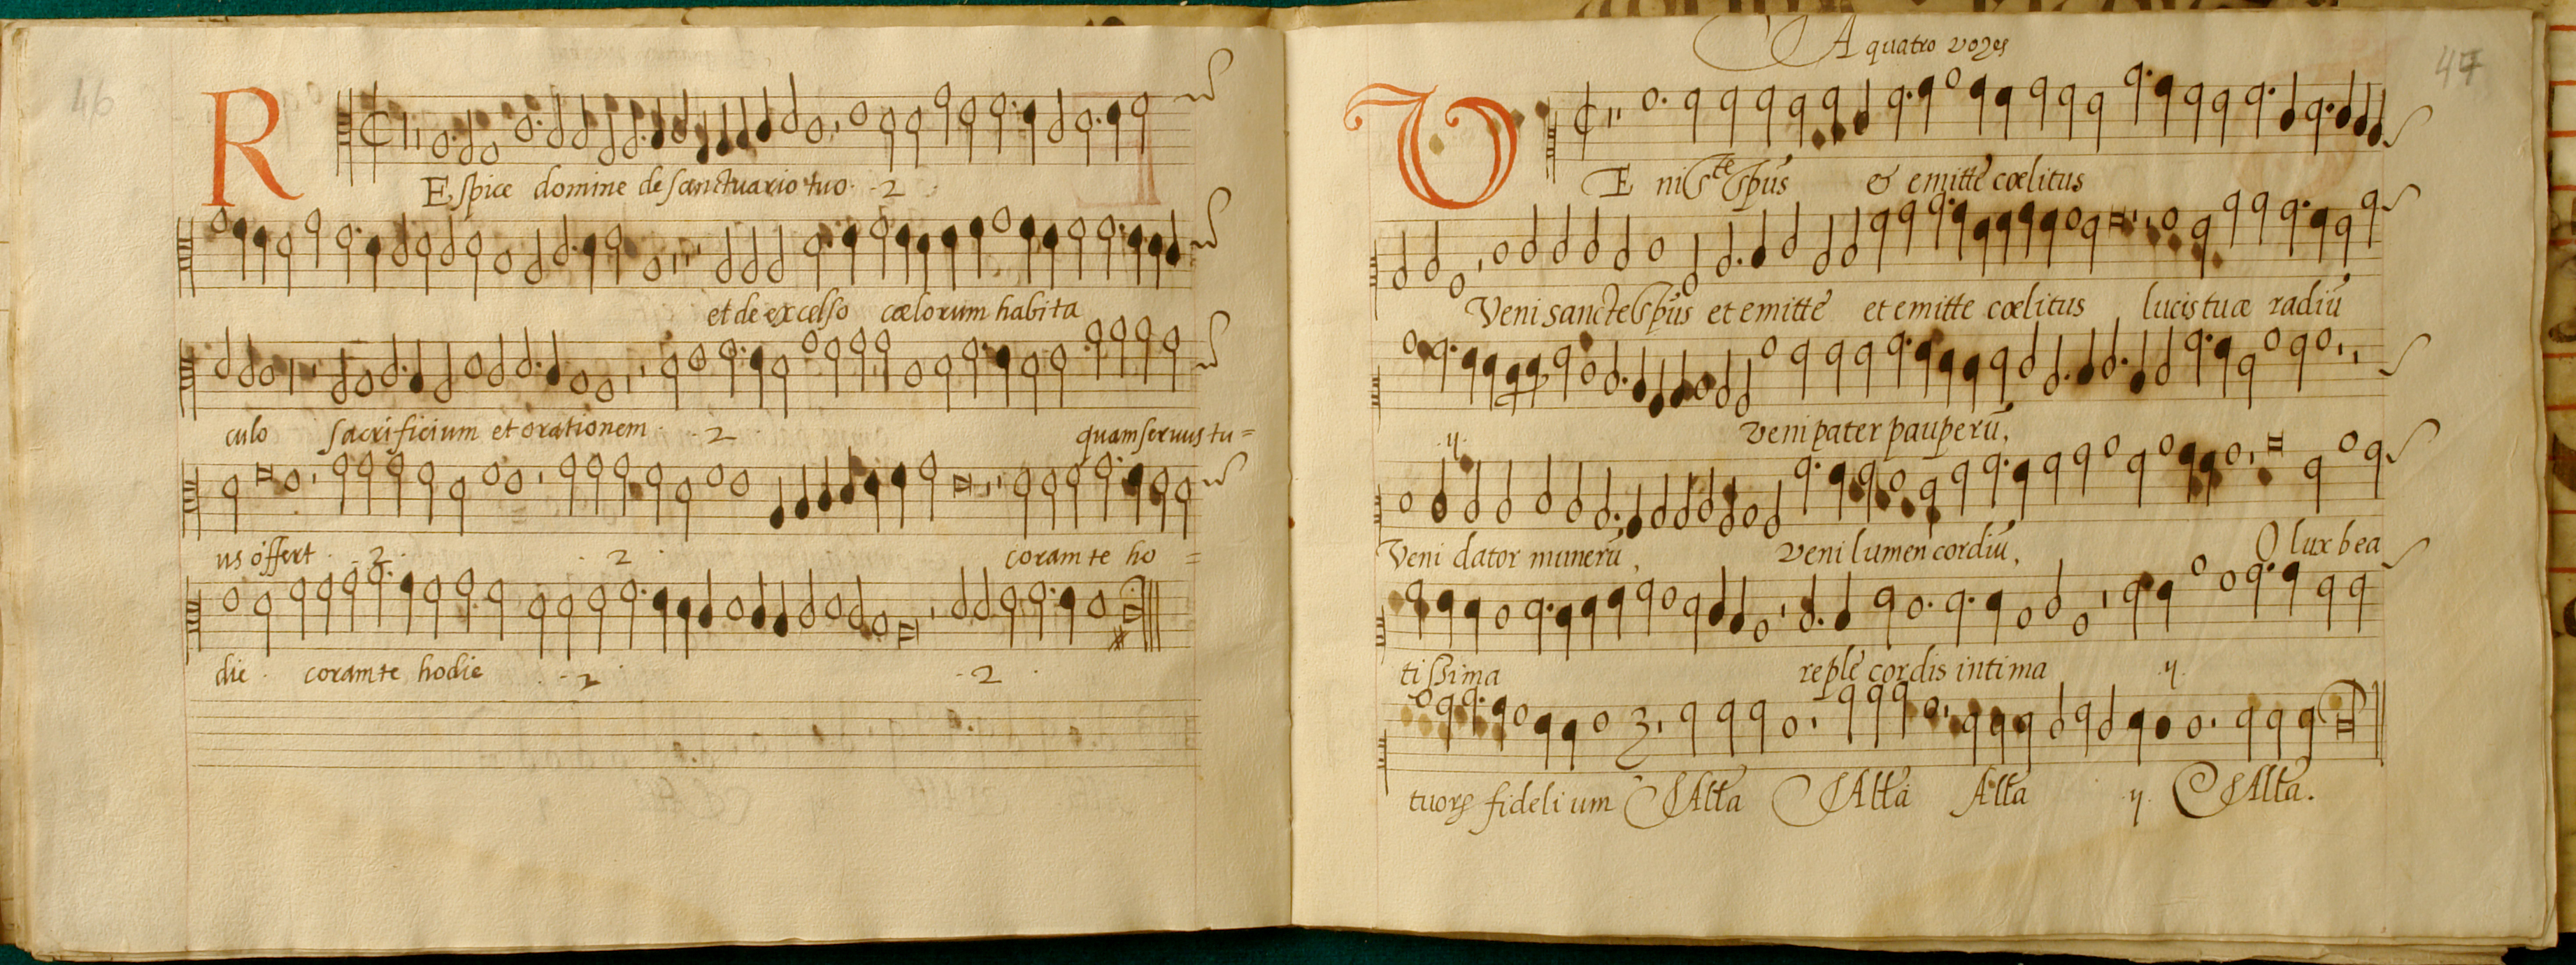 46
REspice domine de sanctuario tuo · 2
et de excelso cælorum habita
culo sacrificium et orationem · 2 · quam seruus tu=
us offert · 2 · 2 · coram te ho=
die · coram te hodie · 2 · 2 ·
47
A quatro vozes
VEni Ste Spũs & emittẽ cœlitus
Veni sancte Spũs et emittẽ et emitte cœlitus lucis tuæ radiũ
·ij· veni pater pauperũ,
Veni dator munerũ, veni lumen cordiũ, O lux bea
tissima reple cordis intima ·ij·
tuorꝝ fidelium Alla Alla Alla ·ij· Alla.